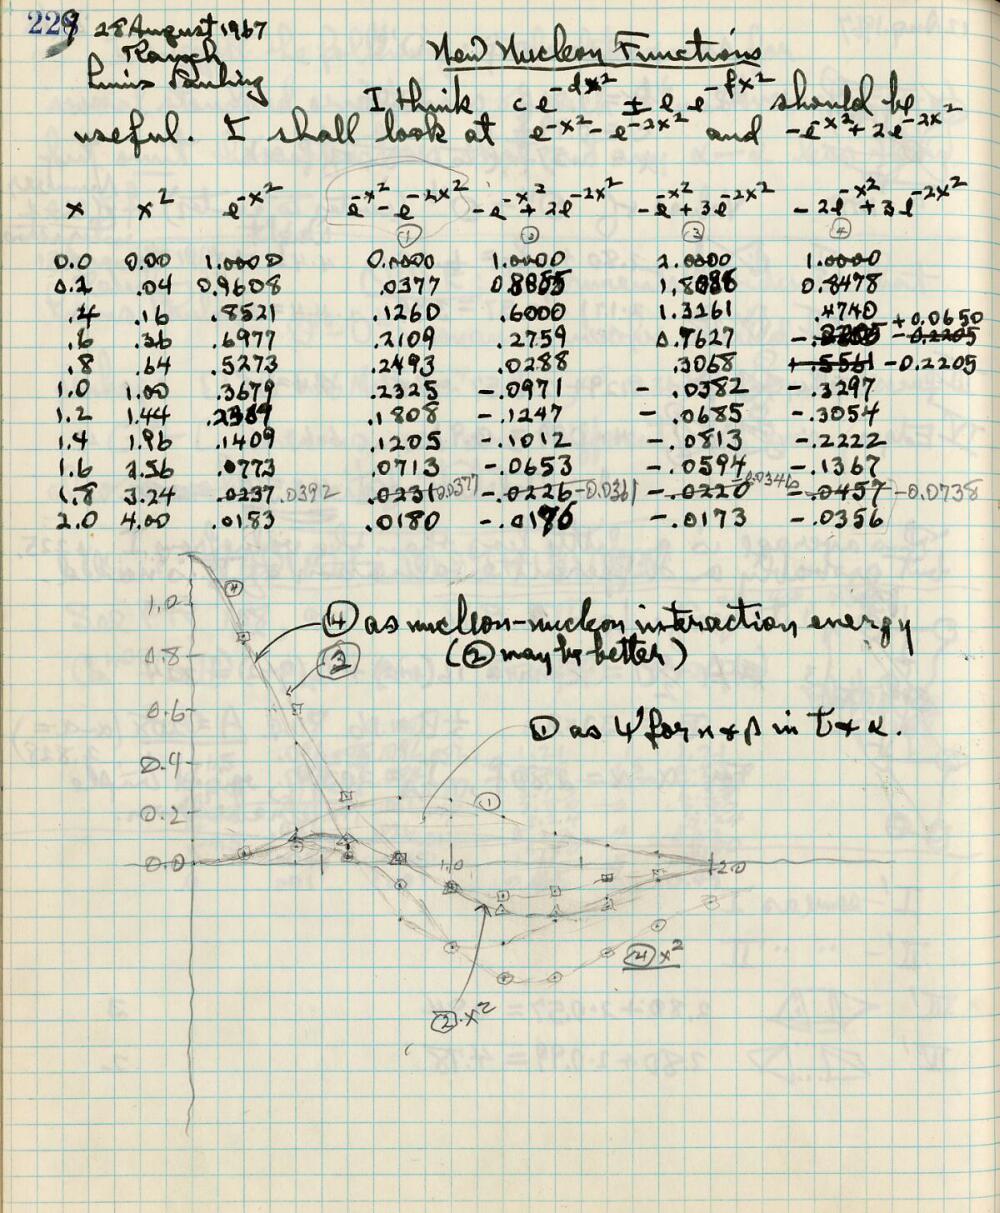 229 28 August 1967
Ranch
Linus Pauling
New Nucleon Functions
I think c e^-dx² ± e e^-fx² should be
useful. I shall look at e^-x² - e^-2x² and -e^-x² + 2e^-2x²
x x² e^-x² e^-x² - e^-2x² -e^-x² + 2e^-2x² -e^-x² + 3e^-2x² -2e^-x² + 3e^-2x²
① ② ③ ④
0.0 0.00 1.0000 0.0000 1.0000 2.0000 1.0000
0.2 .04 0.9608 .0377 0.8855 1.8086 0.8478
.4 .16 .8521 .1260 .6000 1.3261 .4740
.6 .36 .6977 .2109 .2759 0.7627 +0.0650 -0.2205
.8 .64 .5273 .2493 .0288 .3068 +.5561 -0.2205
1.0 1.00 .3679 .2325 -.0971 -.0382 -.3297
1.2 1.44 .2369 .1808 -.1247 -.0685 -.3054
1.4 1.96 .1409 .1205 -.1012 -.0813 -.2222
1.6 2.56 .0773 .0713 -.0653 -.0594 -.1367
1.8 3.24 .0237 .0392 .0231 0.0377 -.0226 -0.0361 -.0220 -0.0346 -.0457 -0.0738
2.0 4.00 .0183 .0180 -.0176 -.0173 -.0356
④
1.0
④ as nucleon-nucleon interaction energy
0.8 ② (② may be better)
0.6
① as Ψ for n & p in t & α.
0.4
0.2 ①
0.0 1.0 2.0
④ x²
② · x²